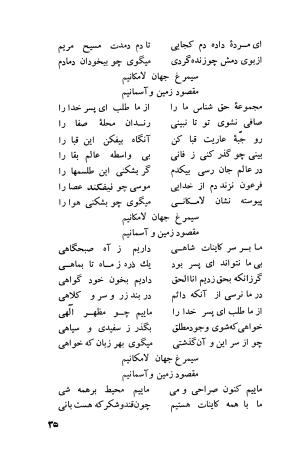 ای مردهٔ داده دم کجایی تا دم دمدت مسیح مریم
از بوی دمش چو زنده گردی میگوی چو بیخودان دمادم
سیمرغ جهان لامکانیم
مقصود زمین و آسمانیم
مجموعهٔ حق شناس ما را از ما طلب ای پسر خدا را
صافی نشوی تو تا نبینی رندان محلهٔ صفا را
رو جبّهٔ عاریت قبا کن آنگاه بیفکن این قبا را
بینی چو گذر کنی ز فانی بی واسطه عالم بقا را
در عالم جان رسی بیکدم گر بشکنی این طلسمها را
فرعون نزند دم از خدایی موسی چو نیفکند عصا را
پیوسته نشان لامکانی میگوی چو بشکنی هوا را
سیمرغ جهان لامکانیم
مقصود زمین و آسمانیم
ما بر سر کاینات شاهی داریم ز آه صبحگاهی
بی ما نتواند ای پسر بود یک ذره ز ماه تا بماهی
گرزانکه بحق زدیم اناالحق داریم بخون خود گواهی
در ما نرسی از آنکه دائم در بند زر و سر و کلاهی
از ما طلب ای پسر خدا را ماییم چو مظهر الهی
خواهی که شوی وجود مطلق بگذر ز سفیدی و سیاهی
چو از سر این و آن گذشتی میگوی بهر زبان که خواهی
سیمرغ جهان لامکانیم
مقصود زمین و آسمانیم
ماییم کنون صراحی و می ماییم محیط بر همه شی
ما با همه کاینات هستیم چون قند و شکر که هست با نی
۳۵